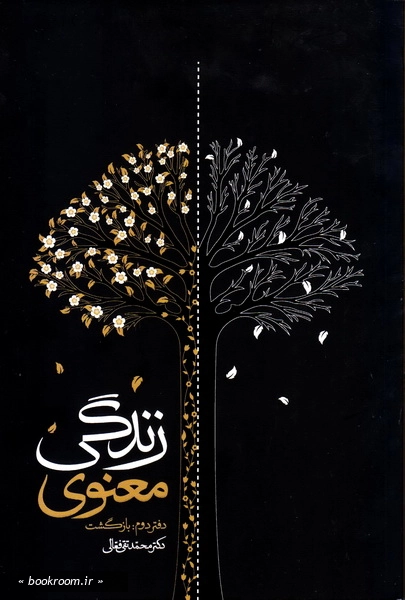 زندگی
معنوی
دفتر دوم: بازگشت
دکتر محمدتقی فعالی
« bookroom.ir »